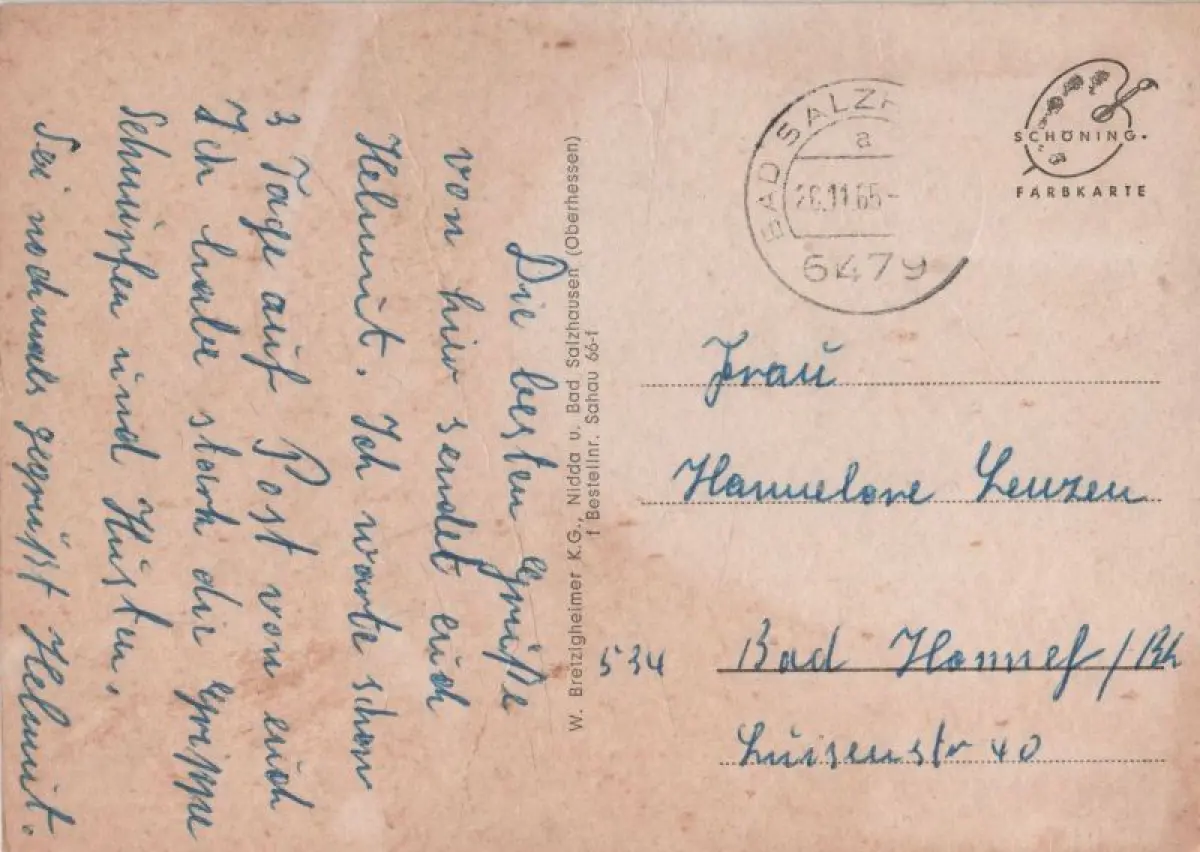 Die besten Grüße
von hier sendet euch
Helmut. Ich warte schon
3 Tage auf Post von euch
Ich habe stark die Grippe
Schnupfen und Husten.
Sei nochmals gegrüsst Helmut.
W. Bretzigheimer K.G., Nidda u. Bad Salzhausen (Oberhessen)
f Bestellnr. Sahau 66-f
BAD SALZH
a
26.11.65-
6479
SCHÖNING
FARBKARTE
Frau
Hannelore Lenzen
534 Bad Honnef/Rh
Luisenstr 40